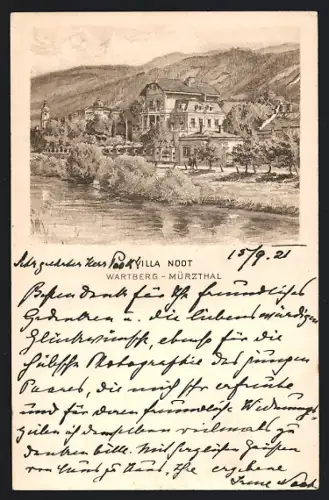 VILLA NOOT
WARTBERG - MÜRZTHAL
15/9. 21
Sehr geehrter Herr
Besten Dank für Ihr freundliches
Gedenken u. die liebenswürdigen
Glückwünsche, ebenso für die
hübsche Photographie des jungen
Paares, die mich sehr erfreute
und für deren freundliche Widmungs-
zeilen ich demselben vielmals zu
danken bitte. Mit herzlichen Grüßen
von Haus zu Haus, Ihr ergebene
Irene Noot